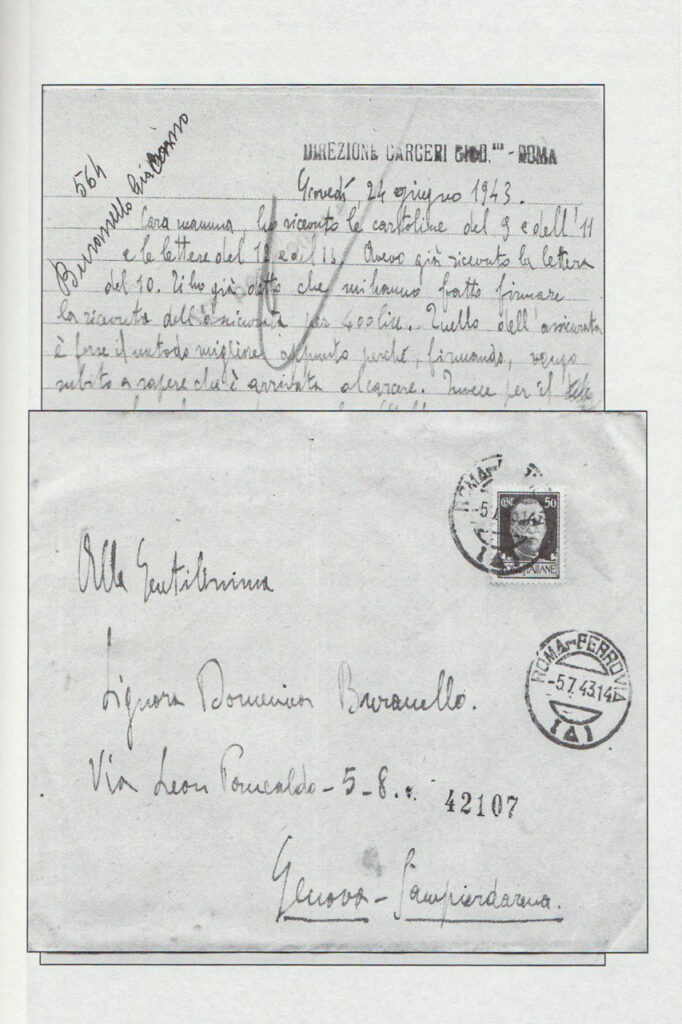 564
Buranello Giacomo
DIREZIONE CARCERI GIUD.rie - ROMA
Giovedì, 24 giugno 1943.
Cara mamma, ho ricevuto le cartoline del 9 e dell'11
e le lettere del 12 e del 13. Avevo già ricevuto la lettera
del 10. Ti ho già detto che mi hanno fatto firmare
la ricevuta dell'assicurata per 400 lire. Quello dell'assicurata
è forse il metodo migliore appunto perché, firmando, vengo
subito a sapere che è arrivata al carcere. Invece per il
CENT. 50
POSTE ITALIANE
ROMA
-5.7
Alla Gentilissima
Signora Domenica Buranello.
ROMA-FERROVIA
-5.7.43.14
(A)
Via Leon Pancaldo - 5 - 8.
42107
Genova - Sampierdarena.